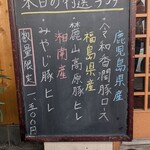 本日の特選とんかつ
鹿児島県産
六穀和香潤豚ロース
福島県産
麓山高原豚ヒレ
湘南産
みやじ豚ヒレ
数量限定
一五〇〇円